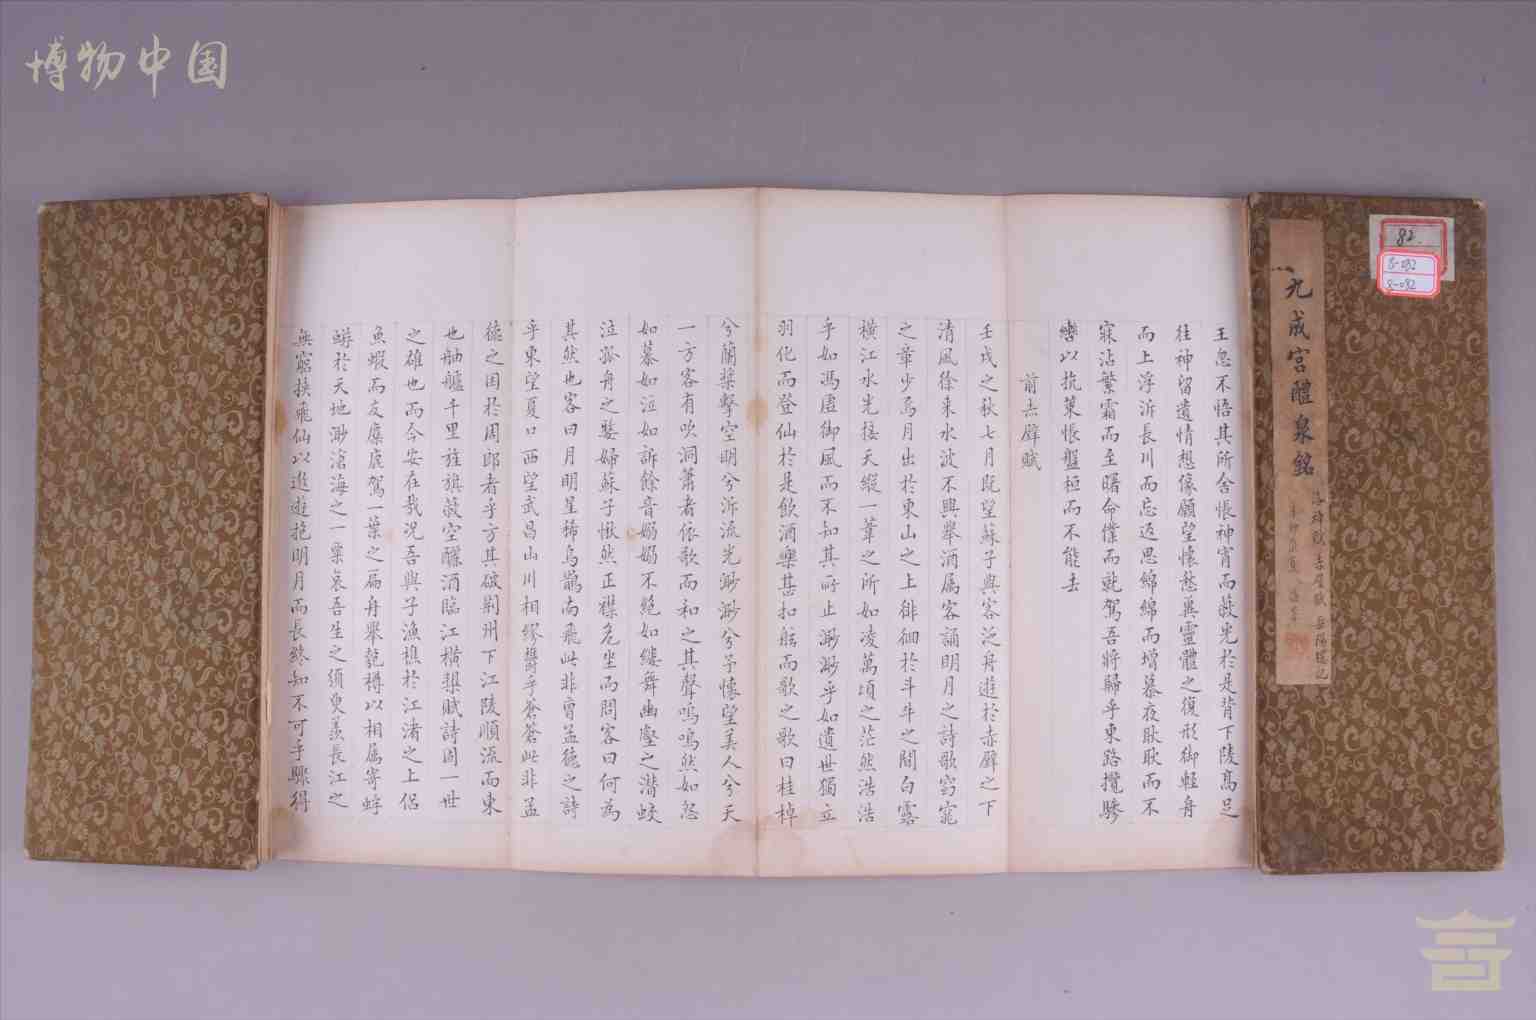 博物中国
82.
8-032
8-032
九成宮醴泉銘
洛神賦 赤壁賦 岳陽樓記
王忽不悟其所舍悵神宵而蔽光於是背下陵高足
往神留遺情想像顧望懷愁冀靈體之復形御輕舟
而上浮泝長川而忘返思綿綿而增慕夜耿耿而不
寐沾繁霜而至曙命僕而就駕吾將歸乎東路攬騑
轡以抗策悵盤桓而不能去
前赤壁賦
壬戌之秋七月既望蘇子與客泛舟遊於赤壁之下
清風徐來水波不興舉酒属客誦明月之詩歌窈窕
之章少焉月出於東山之上徘徊於斗牛之間白露
橫江水光接天縱一葦之所如凌萬頃之茫然浩浩
乎如馮虛御風而不知其所止渺渺乎如遺世獨立
羽化而登仙於是飲酒樂甚扣舷而歌之歌曰桂棹
兮蘭槳擊空明兮泝流光渺渺兮予懷望美人兮天
一方客有吹洞簫者依歌而和之其聲嗚嗚然如怨
如慕如泣如訴餘音嫋嫋不絕如縷舞幽壑之潛蛟
泣孤舟之嫠婦蘇子愀然正襟危坐而問客曰何為
其然也客曰月明星稀烏鵲南飛此非曹孟德之詩
乎東望夏口西望武昌山川相繆鬱乎蒼蒼此非孟
德之困於周郎者乎方其破荆州下江陵順流而東
也舳艫千里旌旗蔽空釃酒臨江橫槊賦詩固一世
之雄也而今安在哉况吾與子漁樵於江渚之上侶
魚蝦而友麋鹿駕一葉之扁舟舉匏樽以相属寄蜉
蝣於天地渺滄海之一粟哀吾生之須臾羨長江之
無窮挾飛仙以遨遊抱明月而長終知不可乎驟得